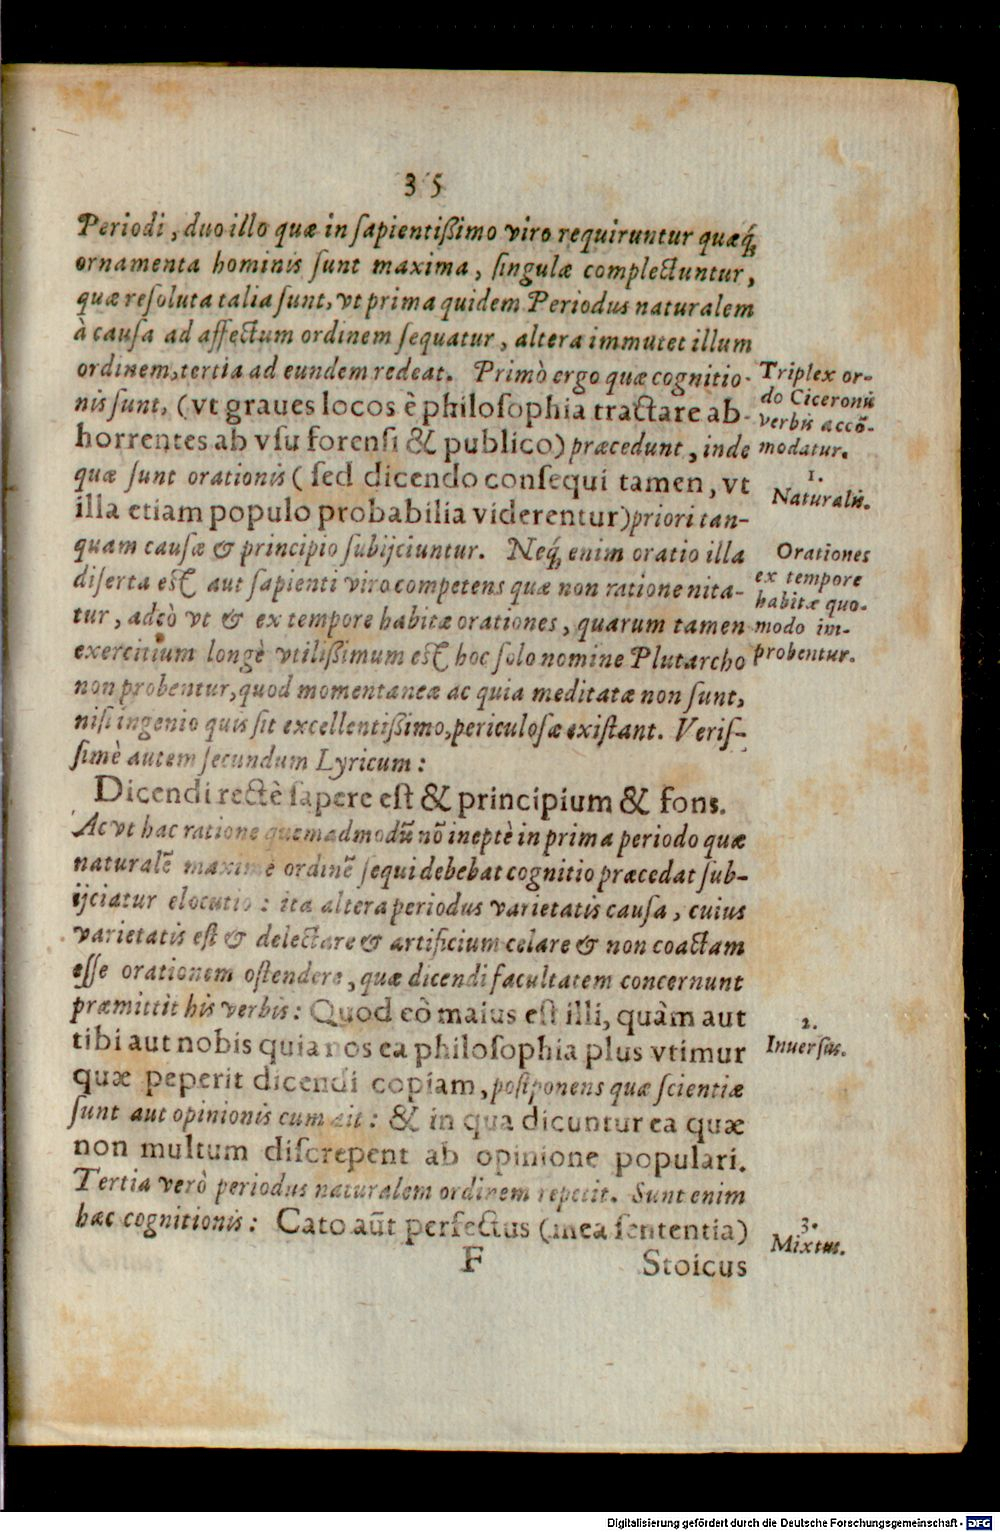 35
Periodi, duo illo quæ in ſapientißimo viro requiruntur quæq́;
ornamenta hominis ſunt maxima, ſingulæ complectuntur,
quæ reſoluta talia ſunt, vt prima quidem Periodus naturalem
à cauſa ad affectum ordinem ſequatur, altera immutet illum
ordinem, tertia ad eundem redeat. Primò ergo quæ cognitio-
nis ſunt, (vt graues locos è philoſophia tractare ab-
horrentes ab vſu forenſi & publico) præcedunt, inde
quæ ſunt orationis (ſed dicendo conſequi tamen, vt
illa etiam populo probabilia viderentur) priori tan-
quam cauſæ & principio ſubijciuntur. Neq́; enim oratio illa
diſerta eſt aut ſapienti viro competens quæ non ratione nita-
tur, adeò vt & ex tempore habitæ orationes, quarum tamen
exercitium longè vtilißimum eſt hoc ſolo nomine Plutarcho
non probentur, quod momentaneæ ac quia meditatæ non ſunt,
niſi ingenio quis ſit excellentißimo, periculoſæ exiſtant. Veriſ-
ſimè autem ſecundum Lyricum:
Dicendi rectè ſapere eſt & principium & fons.
Ac vt hac ratione quemadmodũ nõ ineptè in prima periodo quæ
naturalẽ maximè ordinẽ ſequi debebat cognitio præcedat ſub-
ijciatur elocutio: ita altera periodus varietatis cauſa, cuius
varietatis eſt & delectare & artificium celare & non coactam
eſſe orationem oſtendere, quæ dicendi facultatem concernunt
præmittit his verbis: Quod eò maius eſt illi, quàm aut
tibi aut nobis quia nos ea philoſophia plus vtimur
quæ peperit dicendi copiam, poſtponens quæ ſcientiæ
ſunt aut opinionis cum ait: & in qua dicuntur ea quæ
non multum diſcrepent ab opinione populari.
Tertia verò periodus naturalem ordinem repetit. Sunt enim
hæc cognitionis: Cato aũt perfectus (mea ſententia)
F Stoicus
Triplex or-
do Ciceronis
verbis accõ-
modatur.
1.
Naturalis.
Orationes
ex tempore
habitæ quo-
modo im-
probentur.
2.
Inuerſus.
3.
Mixtus.
Digitalisierung gefördert durch die Deutsche Forschungsgemeinschaft - DFG